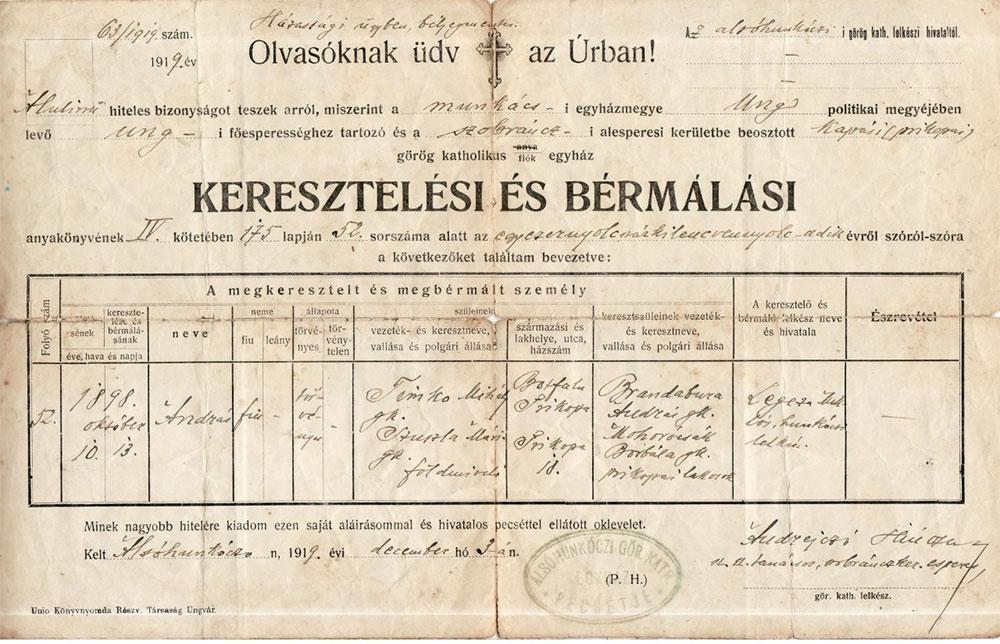 Házassági ügyben, bélyegmentes.
63/1919. szám.
Az alsóhunkóczi i görög kath. lelkészi hivataltól.
1919. év
Olvasóknak üdv az Úrban!
Alulírt hiteles bizonyságot teszek arról, miszerint a munkács- i egyházmegye Ung politikai megyéjében
levő Ung - i főesperességhez tartozó és a szobráncz- i alesperesi kerületbe beosztott (prikopai)
görög katholikus anya fiók egyház
KERESZTELÉSI ÉS BÉRMÁLÁSI
anyakönyvének IV. kötetében 175 lapján 52. sorszáma alatt az egyezernyolcszázkilencvennyolc-adik évről szóról-szóra
a következőket találtam bevezetve:
A megkeresztelt és megbérmált személy
Folyó szám
sének
keresztelése és bérmálásának
éve, hava és napja
neve
neme
fiu leány
állapota
törvényes
törvénytelen
szüleinek
vezeték- és keresztneve, vallása és polgári állása
származási és lakhelye, utca, házszám
keresztszüleinek vezeték- és keresztneve, vallása és polgári állása
A keresztelő és bérmáló lelkész neve és hivatala
Észrevétel
52.
1898.
október
10. 13.
András
fiu
-
törvényes
Timko Mihály
gk.
Mári
gk.
földmívelő
Prikopa
Prikopa
18.
Brandabura
András gk.
Borbála gk.
prikopai lakosok
Legeza
hunkóczi
lelkész.
—
Minek nagyobb hitelére kiadom ezen saját aláirásommal és hivatalos pecséttel ellátott oklevelet.
Kelt Alsóhunkóczo n, 1919 évi december hó 3-án.
ALSÓHUNKÓCZI GÖR. KATH. EGYHÁZ PECSÉTJE
(P. H.)
sz. sz. tanácsos, szobránczker. esperes
gör. kath. lelkész.
Unio Könyvnyomda Részv. Társaság Ungvár.